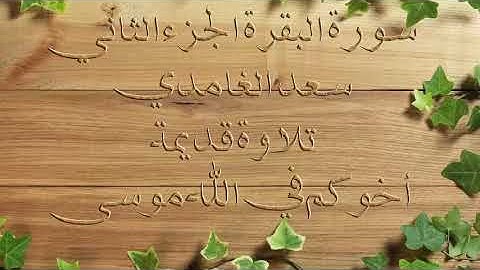 سورة البقرة الجزء الثاني
سعد الغامدي
تلاوة قديمة
أخوكم في الله موسى